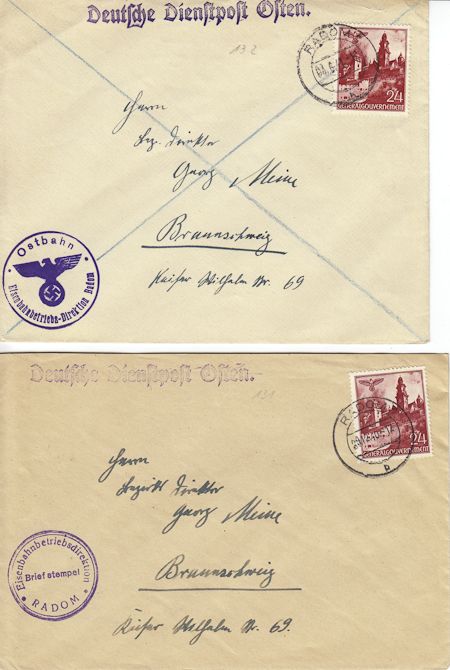 Deutsche Dienstpost Osten.
132
RADOM
24
GENERALGOUVERNEMENT
Herrn
Bez. Direktor
Georg Meine
Braunschweig
Kaiser Wilhelm Str. 69
Ostbahn
Eisenbahnbetriebs-Direktion Radom
Deutsche Dienstpost Osten.
131
RADOM
b
24
GENERALGOUVERNEMENT
Herrn
Bezirks Direktor
Georg Meine
Braunschweig
Kaiser Wilhelm Str. 69.
Eisenbahnbetriebsdirektion
Briefstempel
RADOM